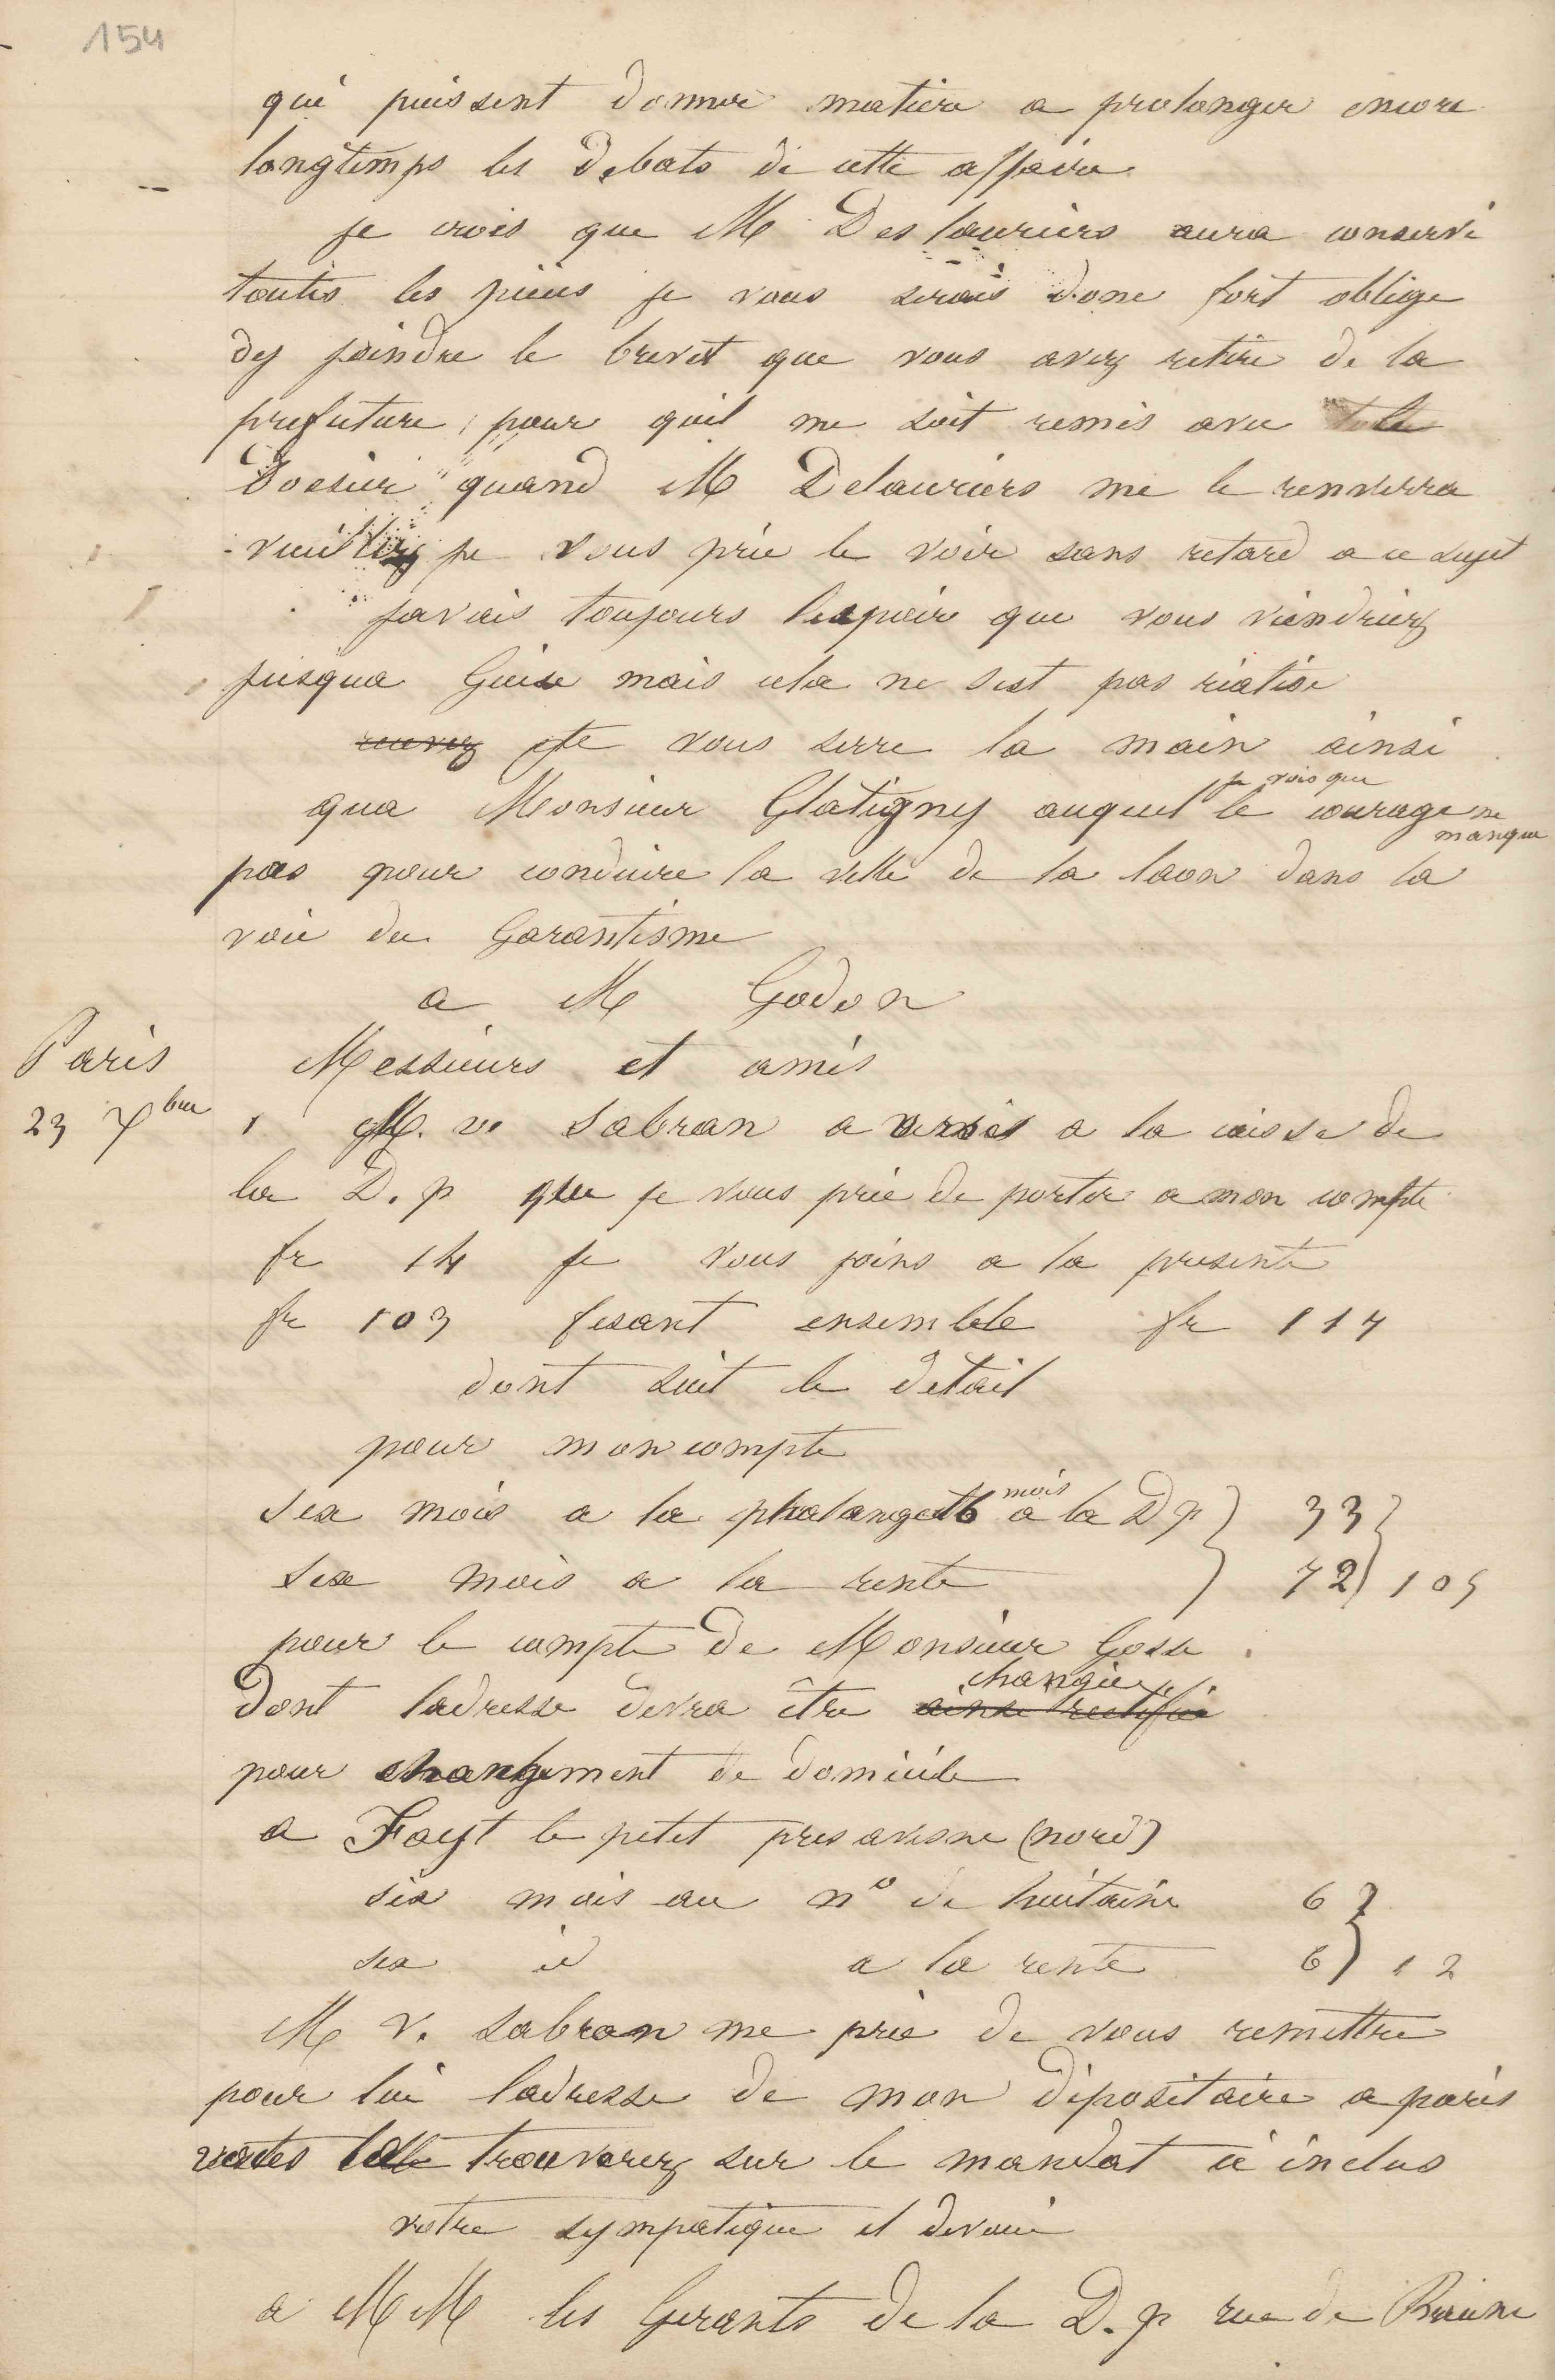 154
qui puissent donner matiere a prolonger encore
longtemps les debats de cette affaire
je crois que M Deslauriers aura conservé
toutes les pieces je vous serais donc fort oblige
dy joindre le brevet que vous avez retire de la
prefecture pour quil me soit remis avec le
dossier quand M Delauriers me le renverra
veuillez je vous prie le voir sans retard a ce sujet
javais toujours lespoir que vous viendriez
jusqua Guise mais cela ne sest pas réalise
recevez je vous serre la main ainsi
qua Monsieur Glatigny auquel je vois que le courage ne manque
pas pour conduire la ville de la laon dans la
voie du Garantisme
a M Godon
Paris
23 7bre
Messieurs et amis
M. v. Sabran a versé a la caisse de
la D. p que je vous prie de porter a mon compte
fr 14 je vous joins a la presente
fr 103 fesant ensemble fr 117
dont suit le detail
pour mon compte
six mois a la phalange et 6 mois a la D p 33
six mois a la rente 72 105
pour le compte de Monsieur Gosse
dont ladresse devra être ainsi rectifiée changée
pour changement de domicile
a Fayt le petit pres avesne (nord)
six mois au no de huitaine 6
six id a la rente 6 12
M v. Sabran me prie de vous remettre
pour lui ladresse de mon dépositaire a paris
vous la trouverez sur le mandat ci inclus
votre sympatique et devoué
a MM les Gerants de la D. p rue de Beaune